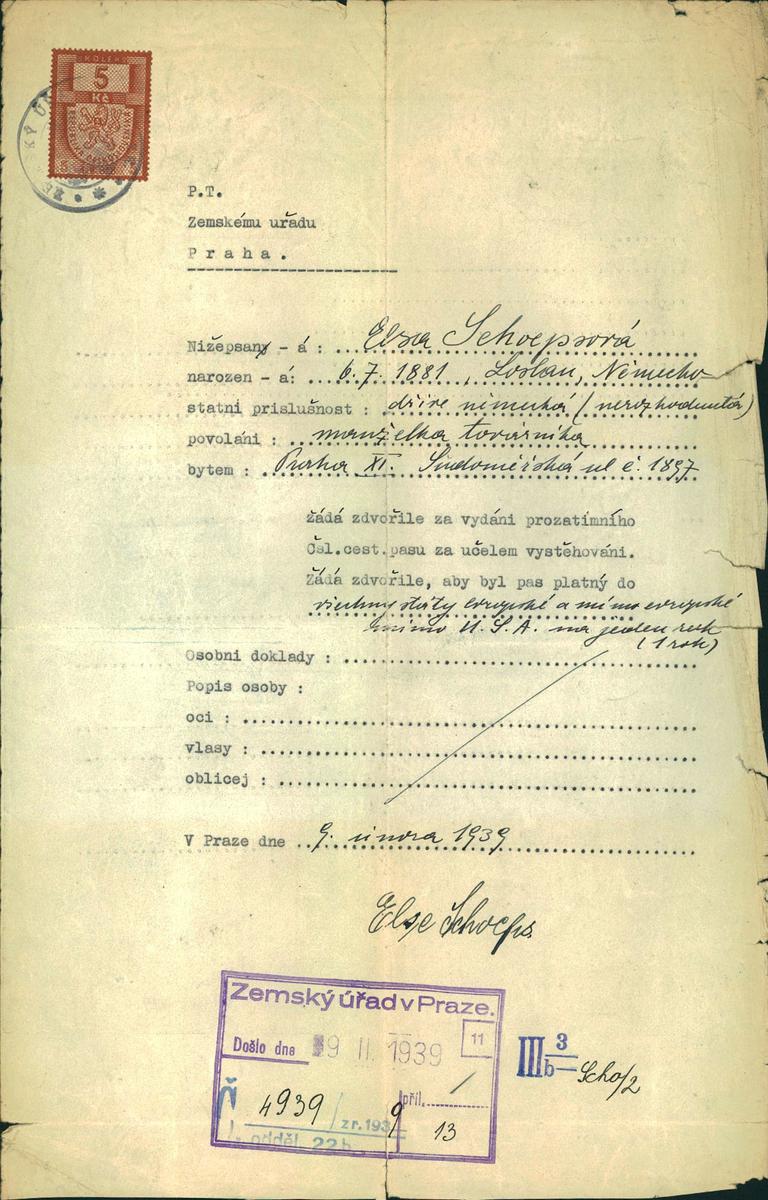 KOLEK
5
Kč
P.T.
Zemskému uřadu
Praha.
Nižepsaný - á : Elsa Schoepsová
narozen - á: 6.7. 1881, Loslau, Německo
statni prislušnost : dříve německá (nerozhodnutá)
povoláni : manželka továrníka
bytem : Praha XI. Sudoměřská ul č. 1897
Žádá zdvořile za vydáni prozatimního
Čsl.cest.pasu za učelem vystěhováni.
Žádá zdvořile, aby byl pas platný do
všechny státy evropské a mimo evropské
mimo U.S.A. na jeden rok
(1 rok)
Osobni doklady :
Popis osoby :
oci :
vlasy :
oblicej :
V Praze dne 9. února 1939
Else Schoeps
Zemský úřad v Praze.
Došlo dne 9 II. 1939 11
Č 4939/ zr. 1939 příl. /
odděl 22b 13
III 3/b — Scho/2